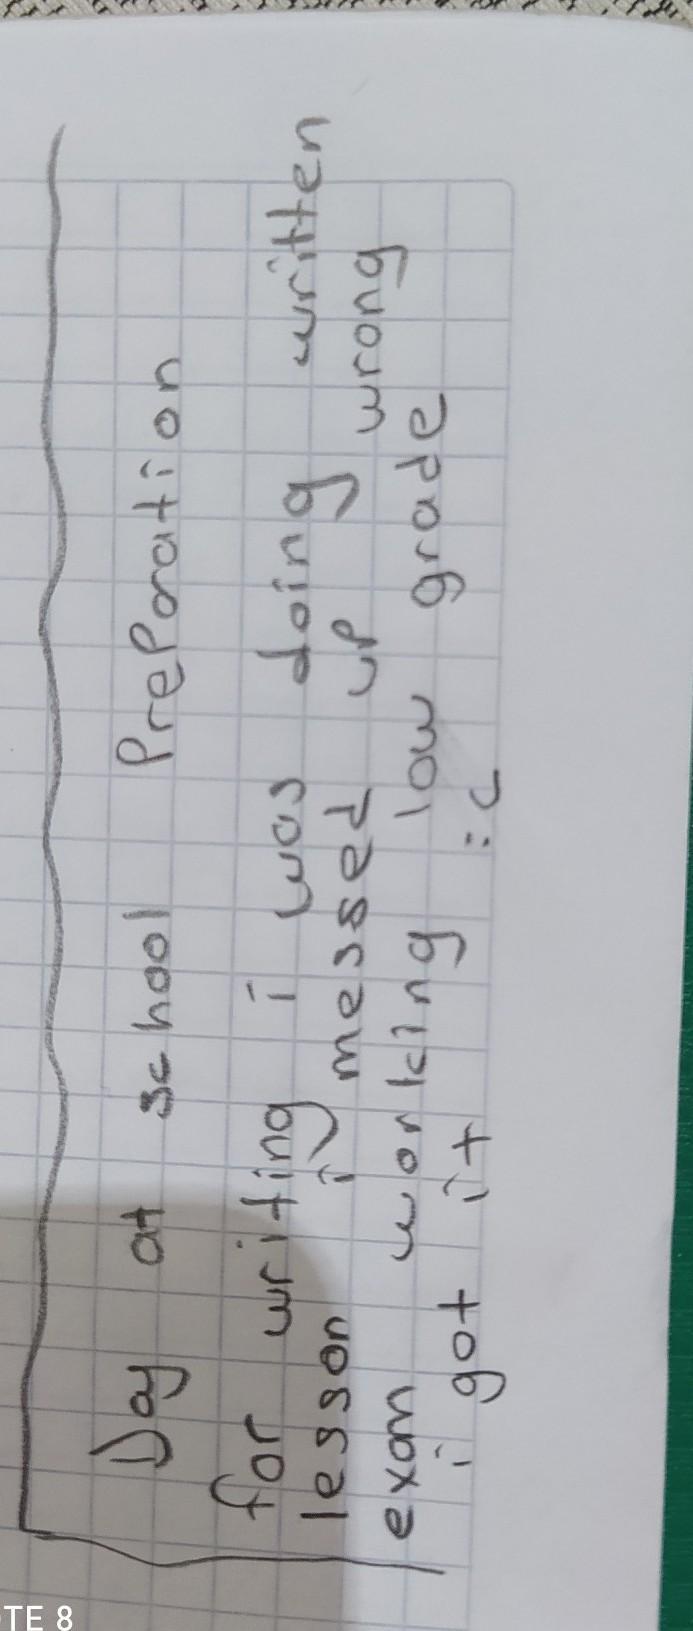 Day at school Preparation
for writing i was doing written
lesson i messed up wrong
exam working low grade
i got it :c
TE 8